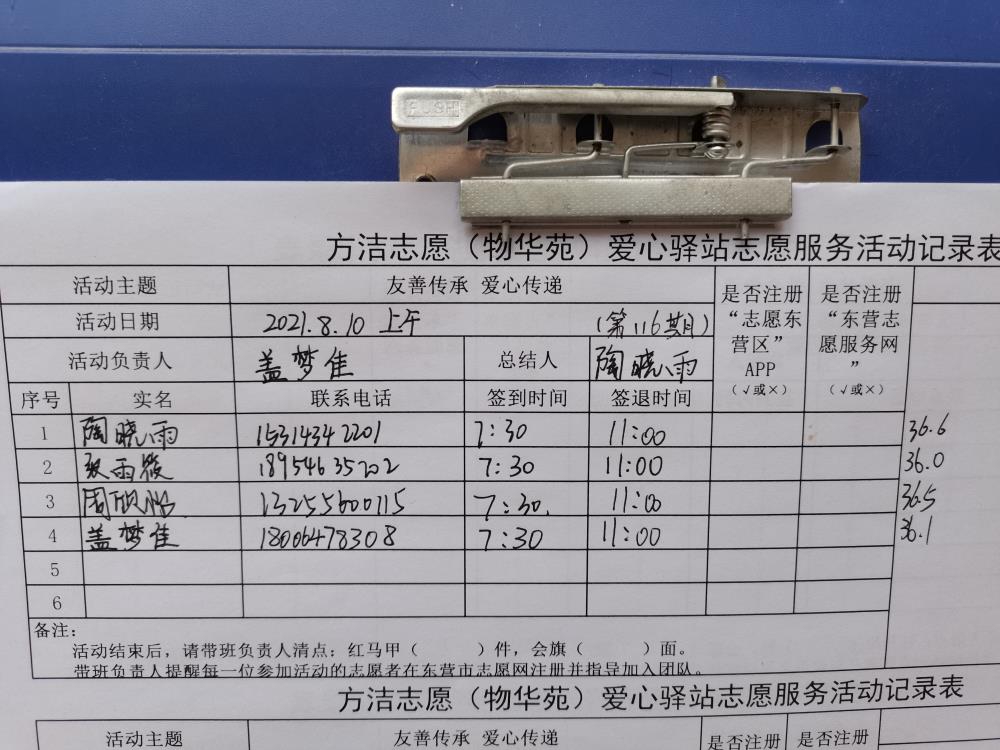 PUSH
方洁志愿（物华苑）爱心驿站志愿服务活动记录表
活动主题 友善传承 爱心传递 是否注册“志愿东营区”APP（√或×） 是否注册“东营志愿服务网”（√或×）
活动日期 2021.8.10 上午 （第116期）
活动负责人 盖梦佳 总结人 陶晓雨
序号 实名 联系电话 签到时间 签退时间
1 陶晓雨 15314342201 7:30 11:00 36.6
2 张雨筱 18954635202 7:30 11:00 36.0
3 周欣怡 13255600115 7:30. 11:00 36.5
4 盖梦佳 18006478308 7:30 11:00 36.1
5
6
备注：
活动结束后，请带班负责人清点：红马甲（ ）件，会旗（ ）面。
带班负责人提醒每一位参加活动的志愿者在东营市志愿网注册并指导加入团队。
方洁志愿（物华苑）爱心驿站志愿服务活动记录表
活动主题 友善传承 爱心传递 是否注册 是否注册